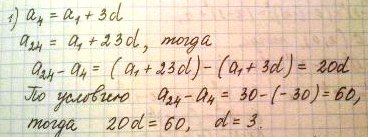 1) a₄ = a₁ + 3d
a₂₄ = a₁ + 23d, тогда
a₂₄ - a₄ = (a₁ + 23d) - (a₁ + 3d) = 20d
По условию a₂₄ - a₄ = 30 - (-30) = 60,
тогда 20d = 60, d = 3.